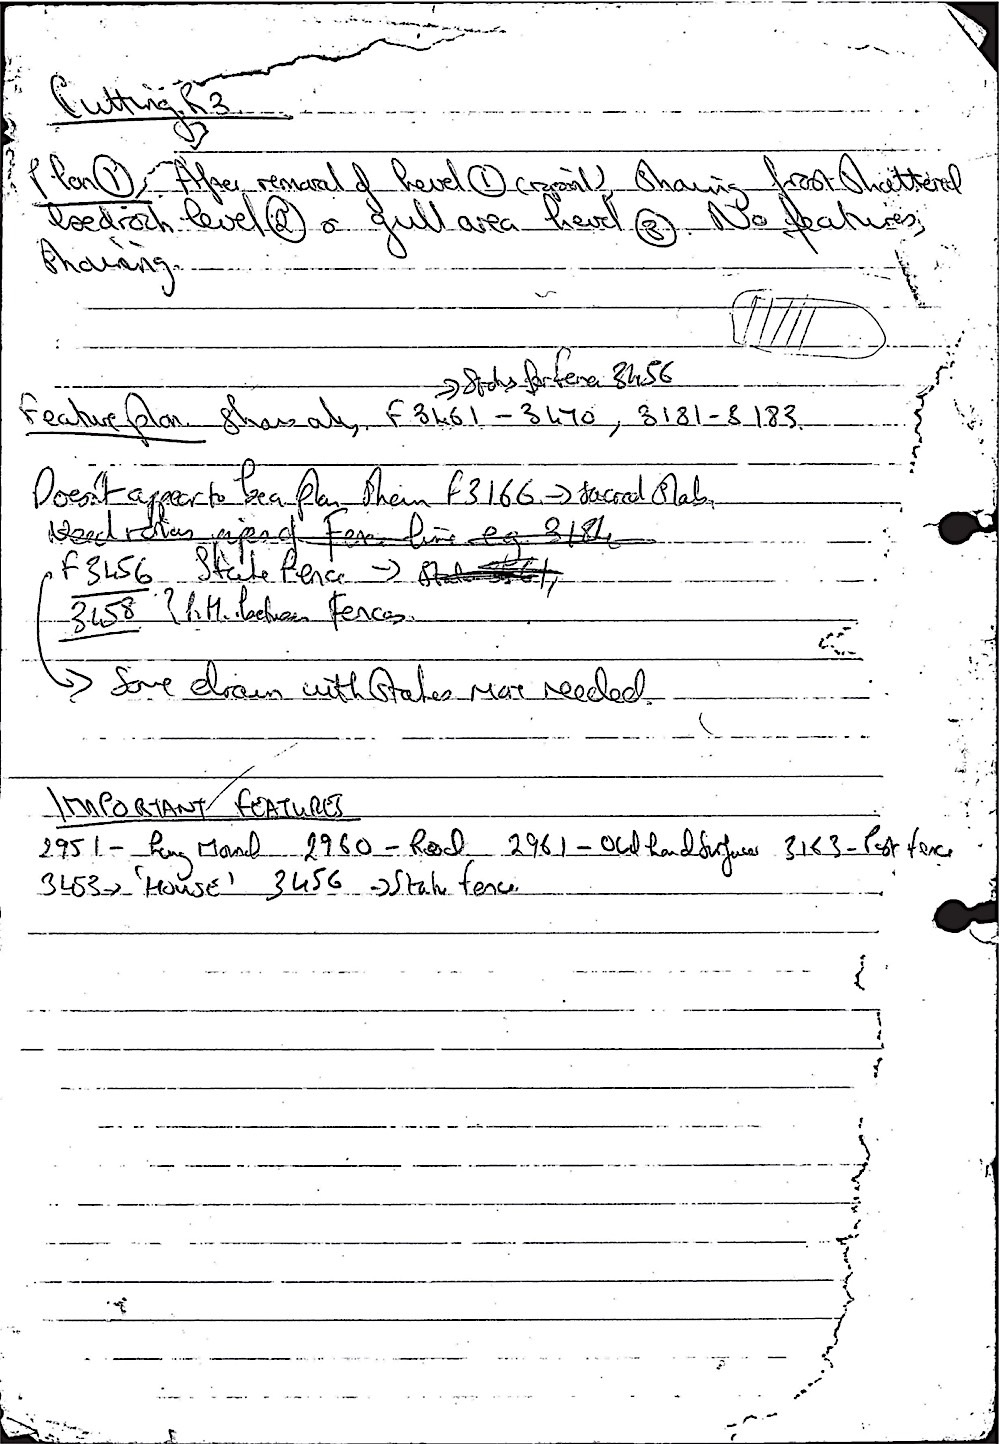 Cutting R3
Plan ① After removal of level ① (topsoil) showing frost shattered
bedrock level ② & gull area level ③. No features,
showing.
→ Stakes for fence 3456
Feature plan shows only F3461 - 3470, 3181-3183.
Doesn't appear to be a plan showing F3166 → sacred slab.
Need rotas Fence line eg 3184
F3456 Stake fence →
3458 ? P.H. between fences.
→ Some drawn with stakes more needed.
IMPORTANT FEATURES
2951 - Long Mound 2960 - Road 2961 - Old land surface 3163 - Post fence
3453 → 'House' 3456 → Stake fence